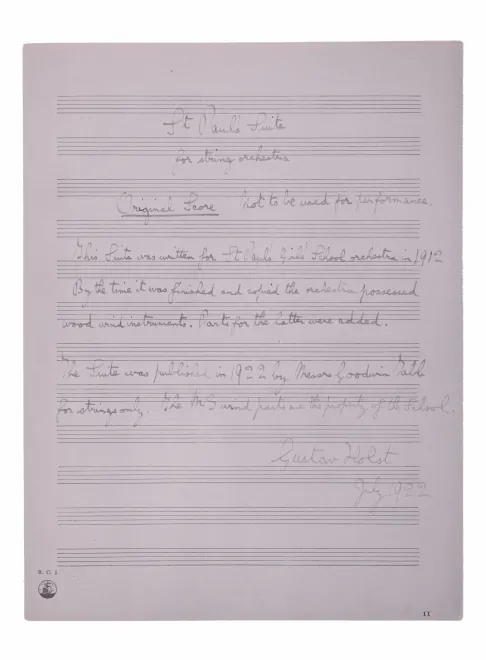 St Paul's Suite
for string orchestra
Original Score Not to be used for performance.
This Suite was written for St Paul's Girls' School orchestra in 1912
By the time it was finished and copied the orchestra possessed
wood wind instruments. Parts for the latter were added.
The Suite was published in 1922 by Messrs Goodwin Tabb
for strings only. The MS wind parts are the property of the School.
Gustav Holst
July 1922
R. C. 1
11